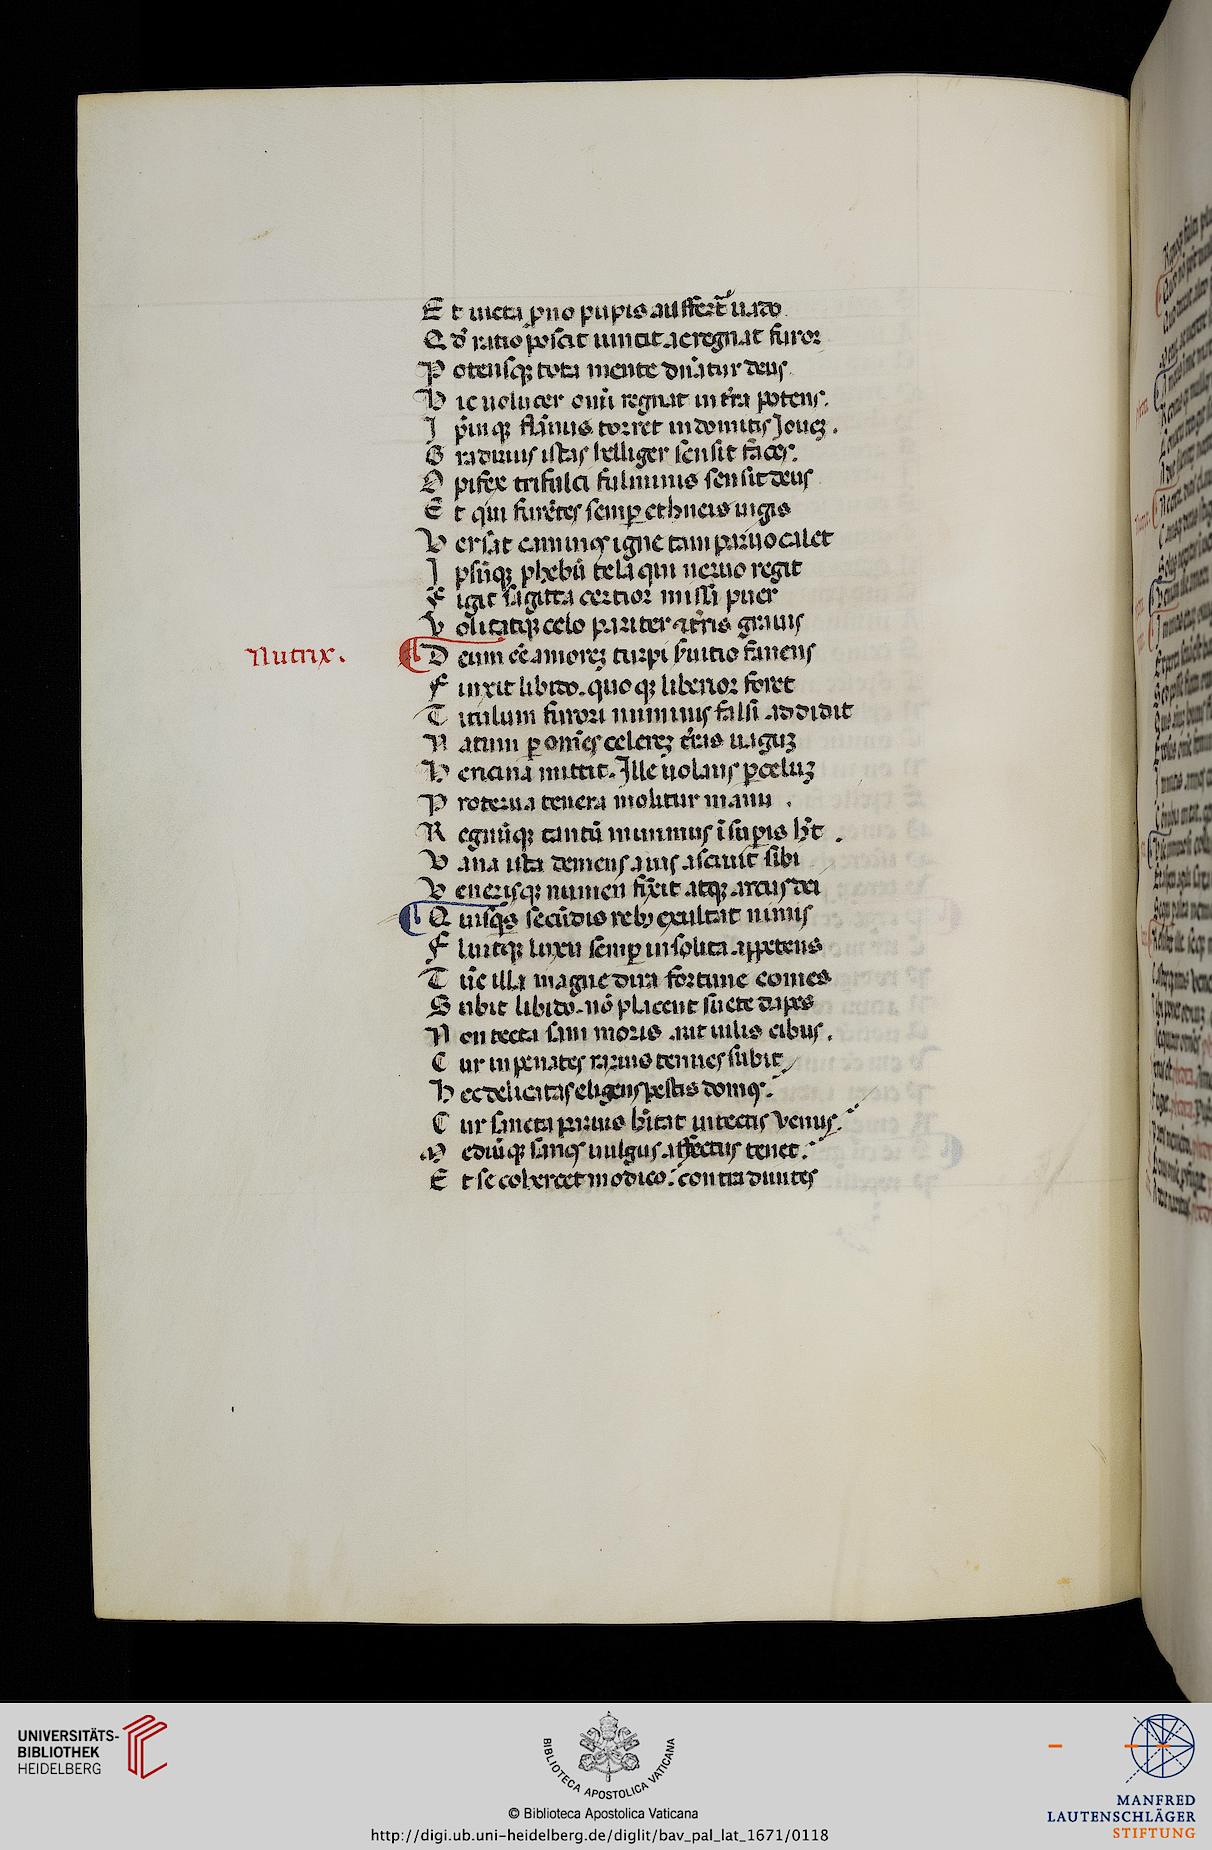 E t uicta prono pupis auffert᷑ uado
Q d̕ ratio poscit uincit ac regnat furor
P otensq; tota mente dn̄atur deus.
H ic uolucer omī regnat in tr̄a potens.
I pm̄q; flāmis torret indomitis Jouez.
G radiuus istas belliger sensit faces.
O pifex trisulci fulminis sensit deus
E t qui furētes semꝑ ethneis iugis
V ersat caminos igne tam paruo calet
I psūq; phebū tela qui neruo regit
F igit sagitta certior missa puer
V olitatq; celo pariter ⁊ tr̄is grauis
Nutrix.
D eum eē amorez turpi ⁊ uitio fauens
F inxit libido. quo q; liberior foret
T itulum furori numinis falsi addidit
N atum ꝑ omēs celerez tr̄as uaguz
H encina mittit. Ille uolans ꝑ celuz
P roterua tenera molitur manu .
R egnūq; tantū minimus ī suꝑis hēt .
V ana ista demens auus asciuit sibi .
V enerisq; numen fixit atq; arcus dei
Q uisqs secūdis rebꝫ exultat nimis
F luitq; luxu semꝑ insolita appetens
T ūc illa magne dira fortune comes
S ubit libido. nō placent suete dapes
N on tecta sani moris aut uilis cibus.
C ur in penates rarius tenues subit
H ec delicatas eligens pestis domos.
C ur sancta paruis hītat in tectis Venus.
M ediūq; sanos uulgus affectus tenet.
E t se cohercet modico. contra diuites
UNIVERSITÄTS-
BIBLIOTHEK
HEIDELBERG
BIBLIOTECA APOSTOLICA VATICANA
© Biblioteca Apostolica Vaticana
http://digi.ub.uni-heidelberg.de/diglit/bav_pal_lat_1671/0118
MANFRED
LAUTENSCHLÄGER
STIFTUNG